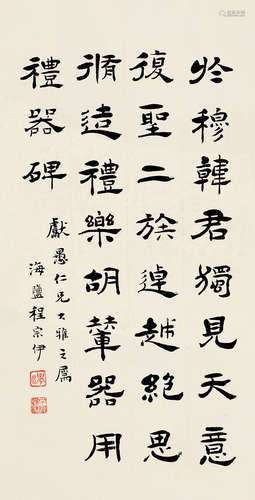 於穆韓君獨見天意
復聖二族逴越絕思
脩造禮樂胡輦器用
禮器碑
獻愚仁兄大雅之屬
海鹽程宗伊